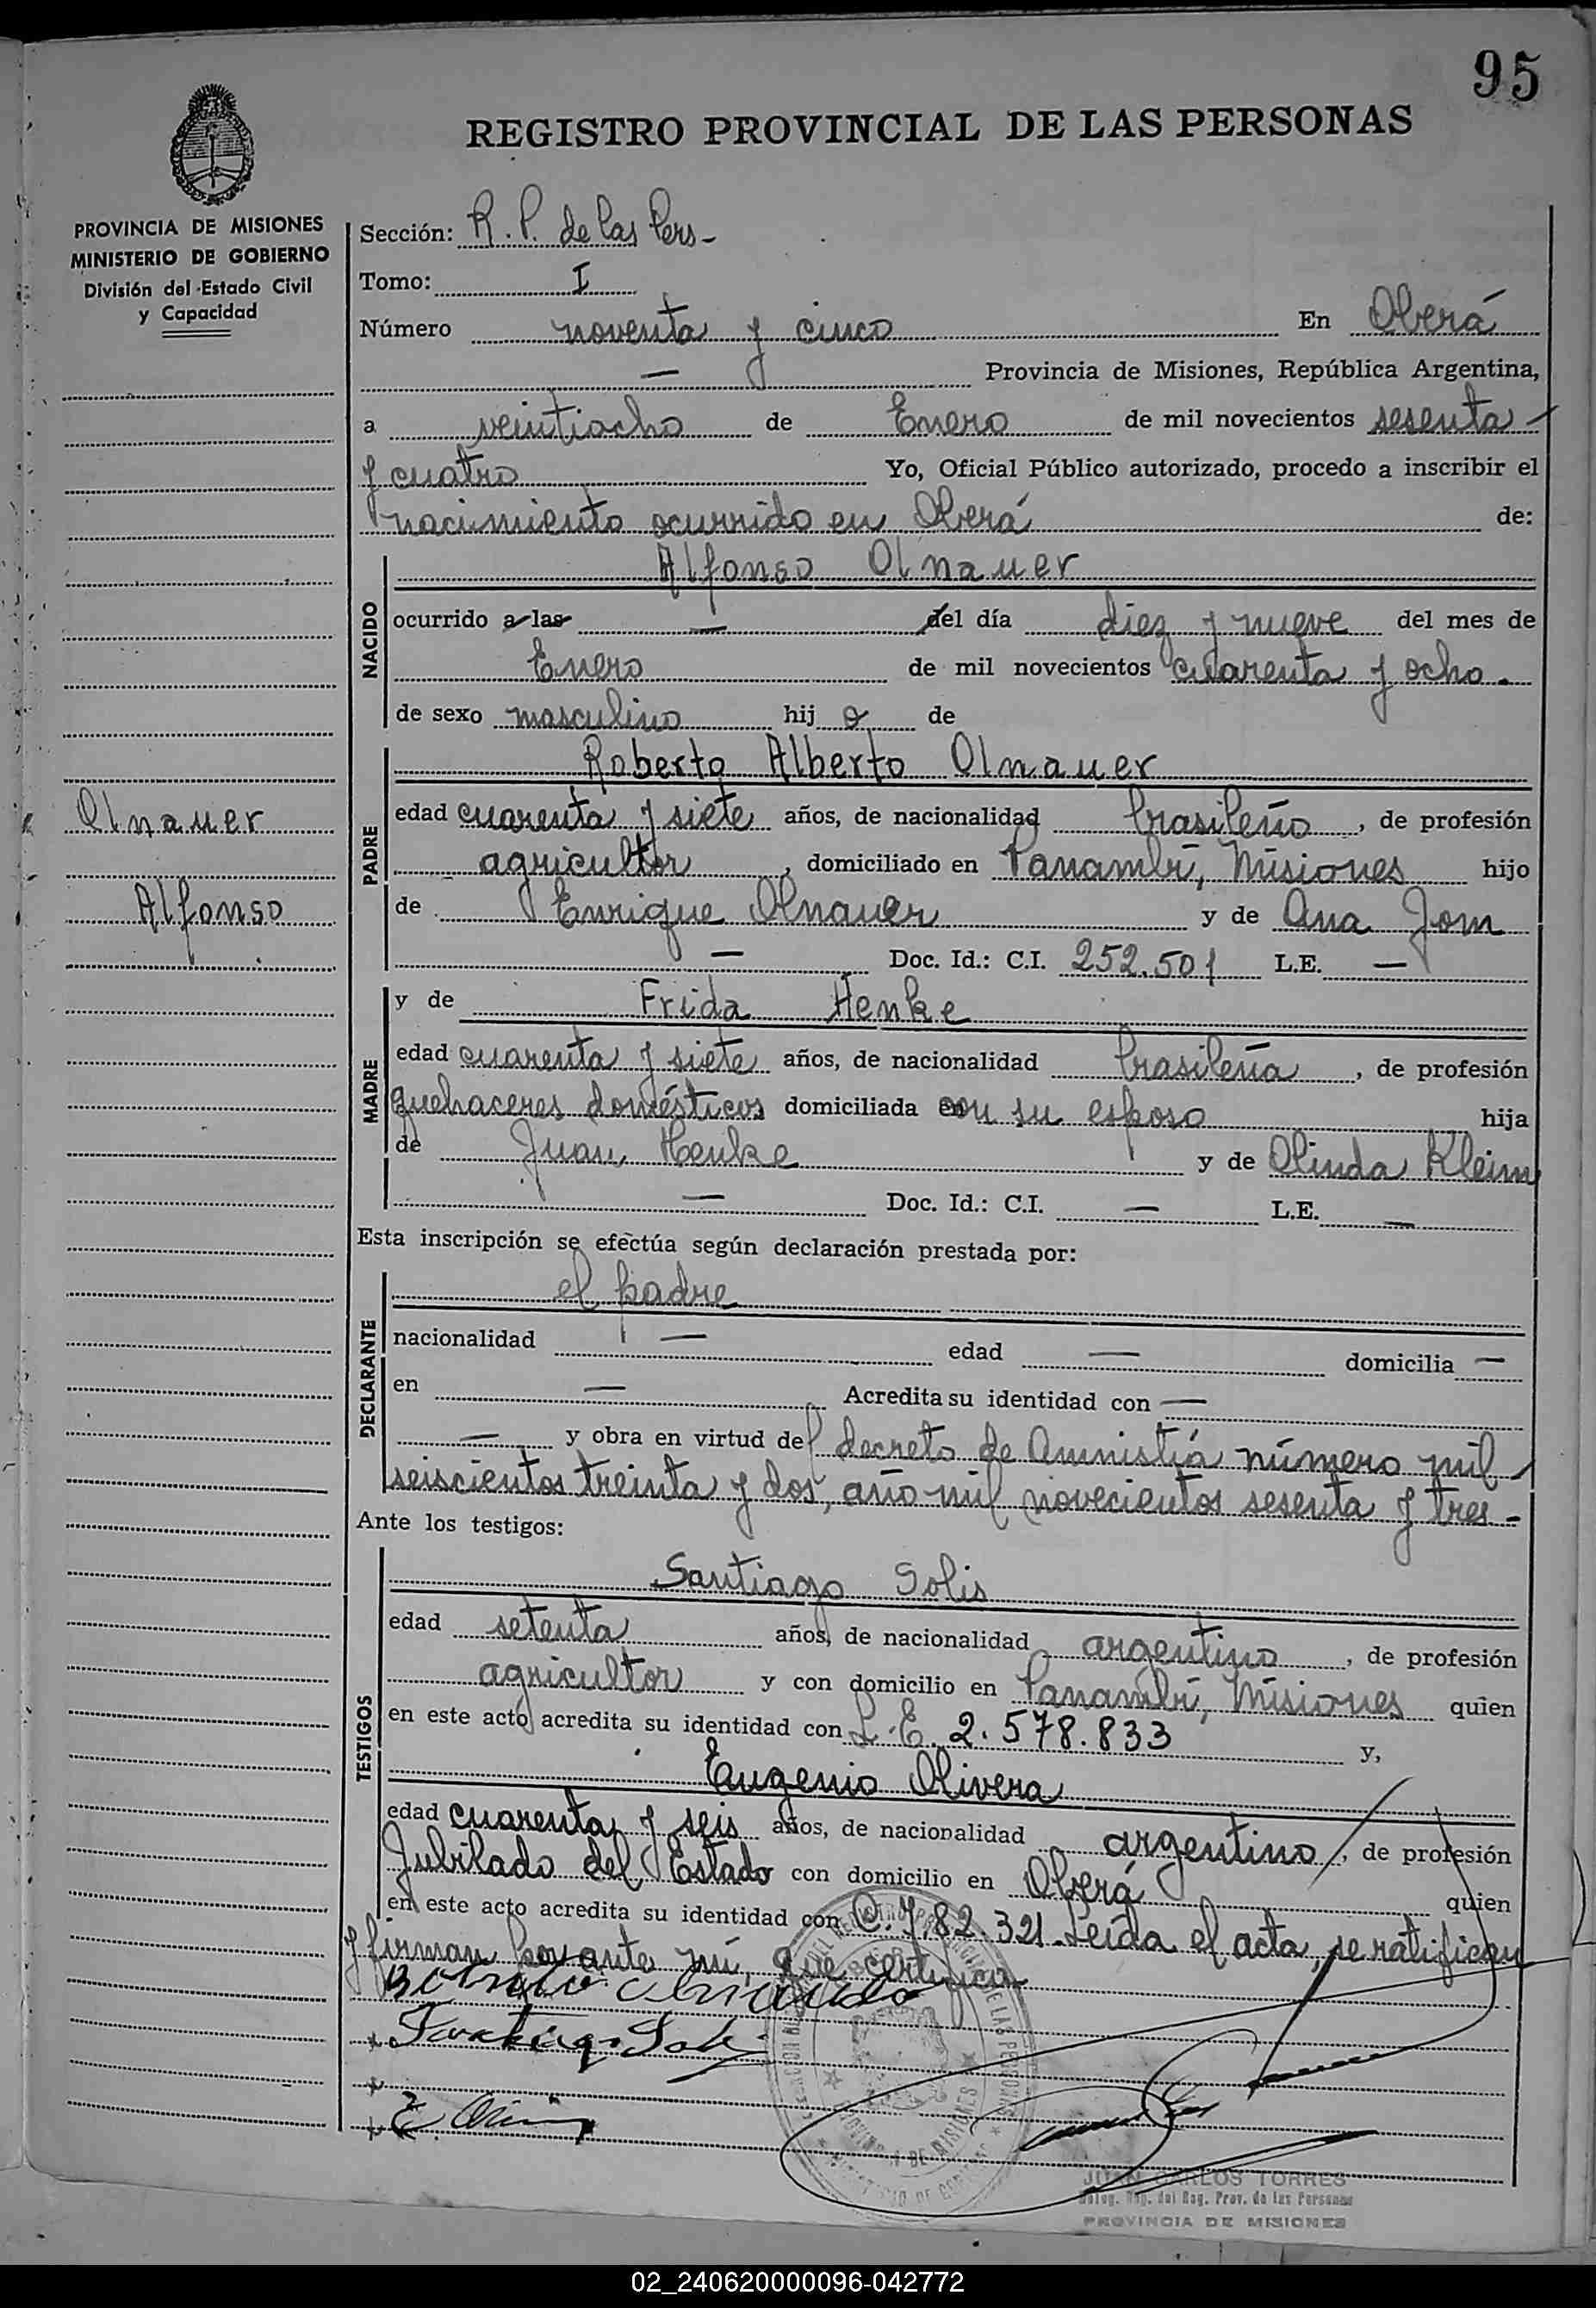 95
REGISTRO PROVINCIAL DE LAS PERSONAS
PROVINCIA DE MISIONES
MINISTERIO DE GOBIERNO
División del Estado Civil
y Capacidad
Sección: R. P. de las Pers-
Tomo: I
Número noventa y cinco En Oberá
— Provincia de Misiones, República Argentina,
a veintiocho de Enero de mil novecientos sesenta
y cuatro Yo, Oficial Público autorizado, procedo a inscribir el
nacimiento ocurrido en Oberá de:
NACIDO
Alfonso Olnauer
ocurrido a las — del día diez y nueve del mes de
Enero de mil novecientos cuarenta y ocho.
de sexo masculino hij o de
PADRE
Roberto Alberto Olnauer
edad cuarenta y siete años, de nacionalidad brasileño, de profesión
agricultor, domiciliado en Panambí, Misiones hijo
de Enrique Olnauer y de Ana Jom
— Doc. Id.: C.I. 252.501 L.E. —
Olnauer
Alfonso
MADRE
y de Frida Henke
edad cuarenta y siete años, de nacionalidad brasileña, de profesión
quehaceres domésticos domiciliada con su esposo hija
de Juan Henke y de Olinda Kleim
— Doc. Id.: C.I. — L.E. —
Esta inscripción se efectúa según declaración prestada por:
DECLARANTE
el padre
nacionalidad — edad — domicilia —
en — Acredita su identidad con —
— y obra en virtud del decreto de Amnistía número mil
seiscientos treinta y dos, año mil novecientos sesenta y tres -
Ante los testigos:
TESTIGOS
Santiago Solis
edad setenta años, de nacionalidad argentino, de profesión
agricultor y con domicilio en Panambí, Misiones quien
en este acto acredita su identidad con L.E. 2.578.833 y,
Eugenio Olivera
edad cuarenta y seis años, de nacionalidad argentino, de profesión
Jubilado del Estado con domicilio en Oberá quien
en este acto acredita su identidad con C.I. 82.321. Leída el acta, se ratifican
y firman por ante mí, que certifico
Santiago Solis
E. Olivera
JUAN CARLOS TORRES
Deleg. Reg. del Reg. Prov. de las Personas
PROVINCIA DE MISIONES
02_240620000096-042772